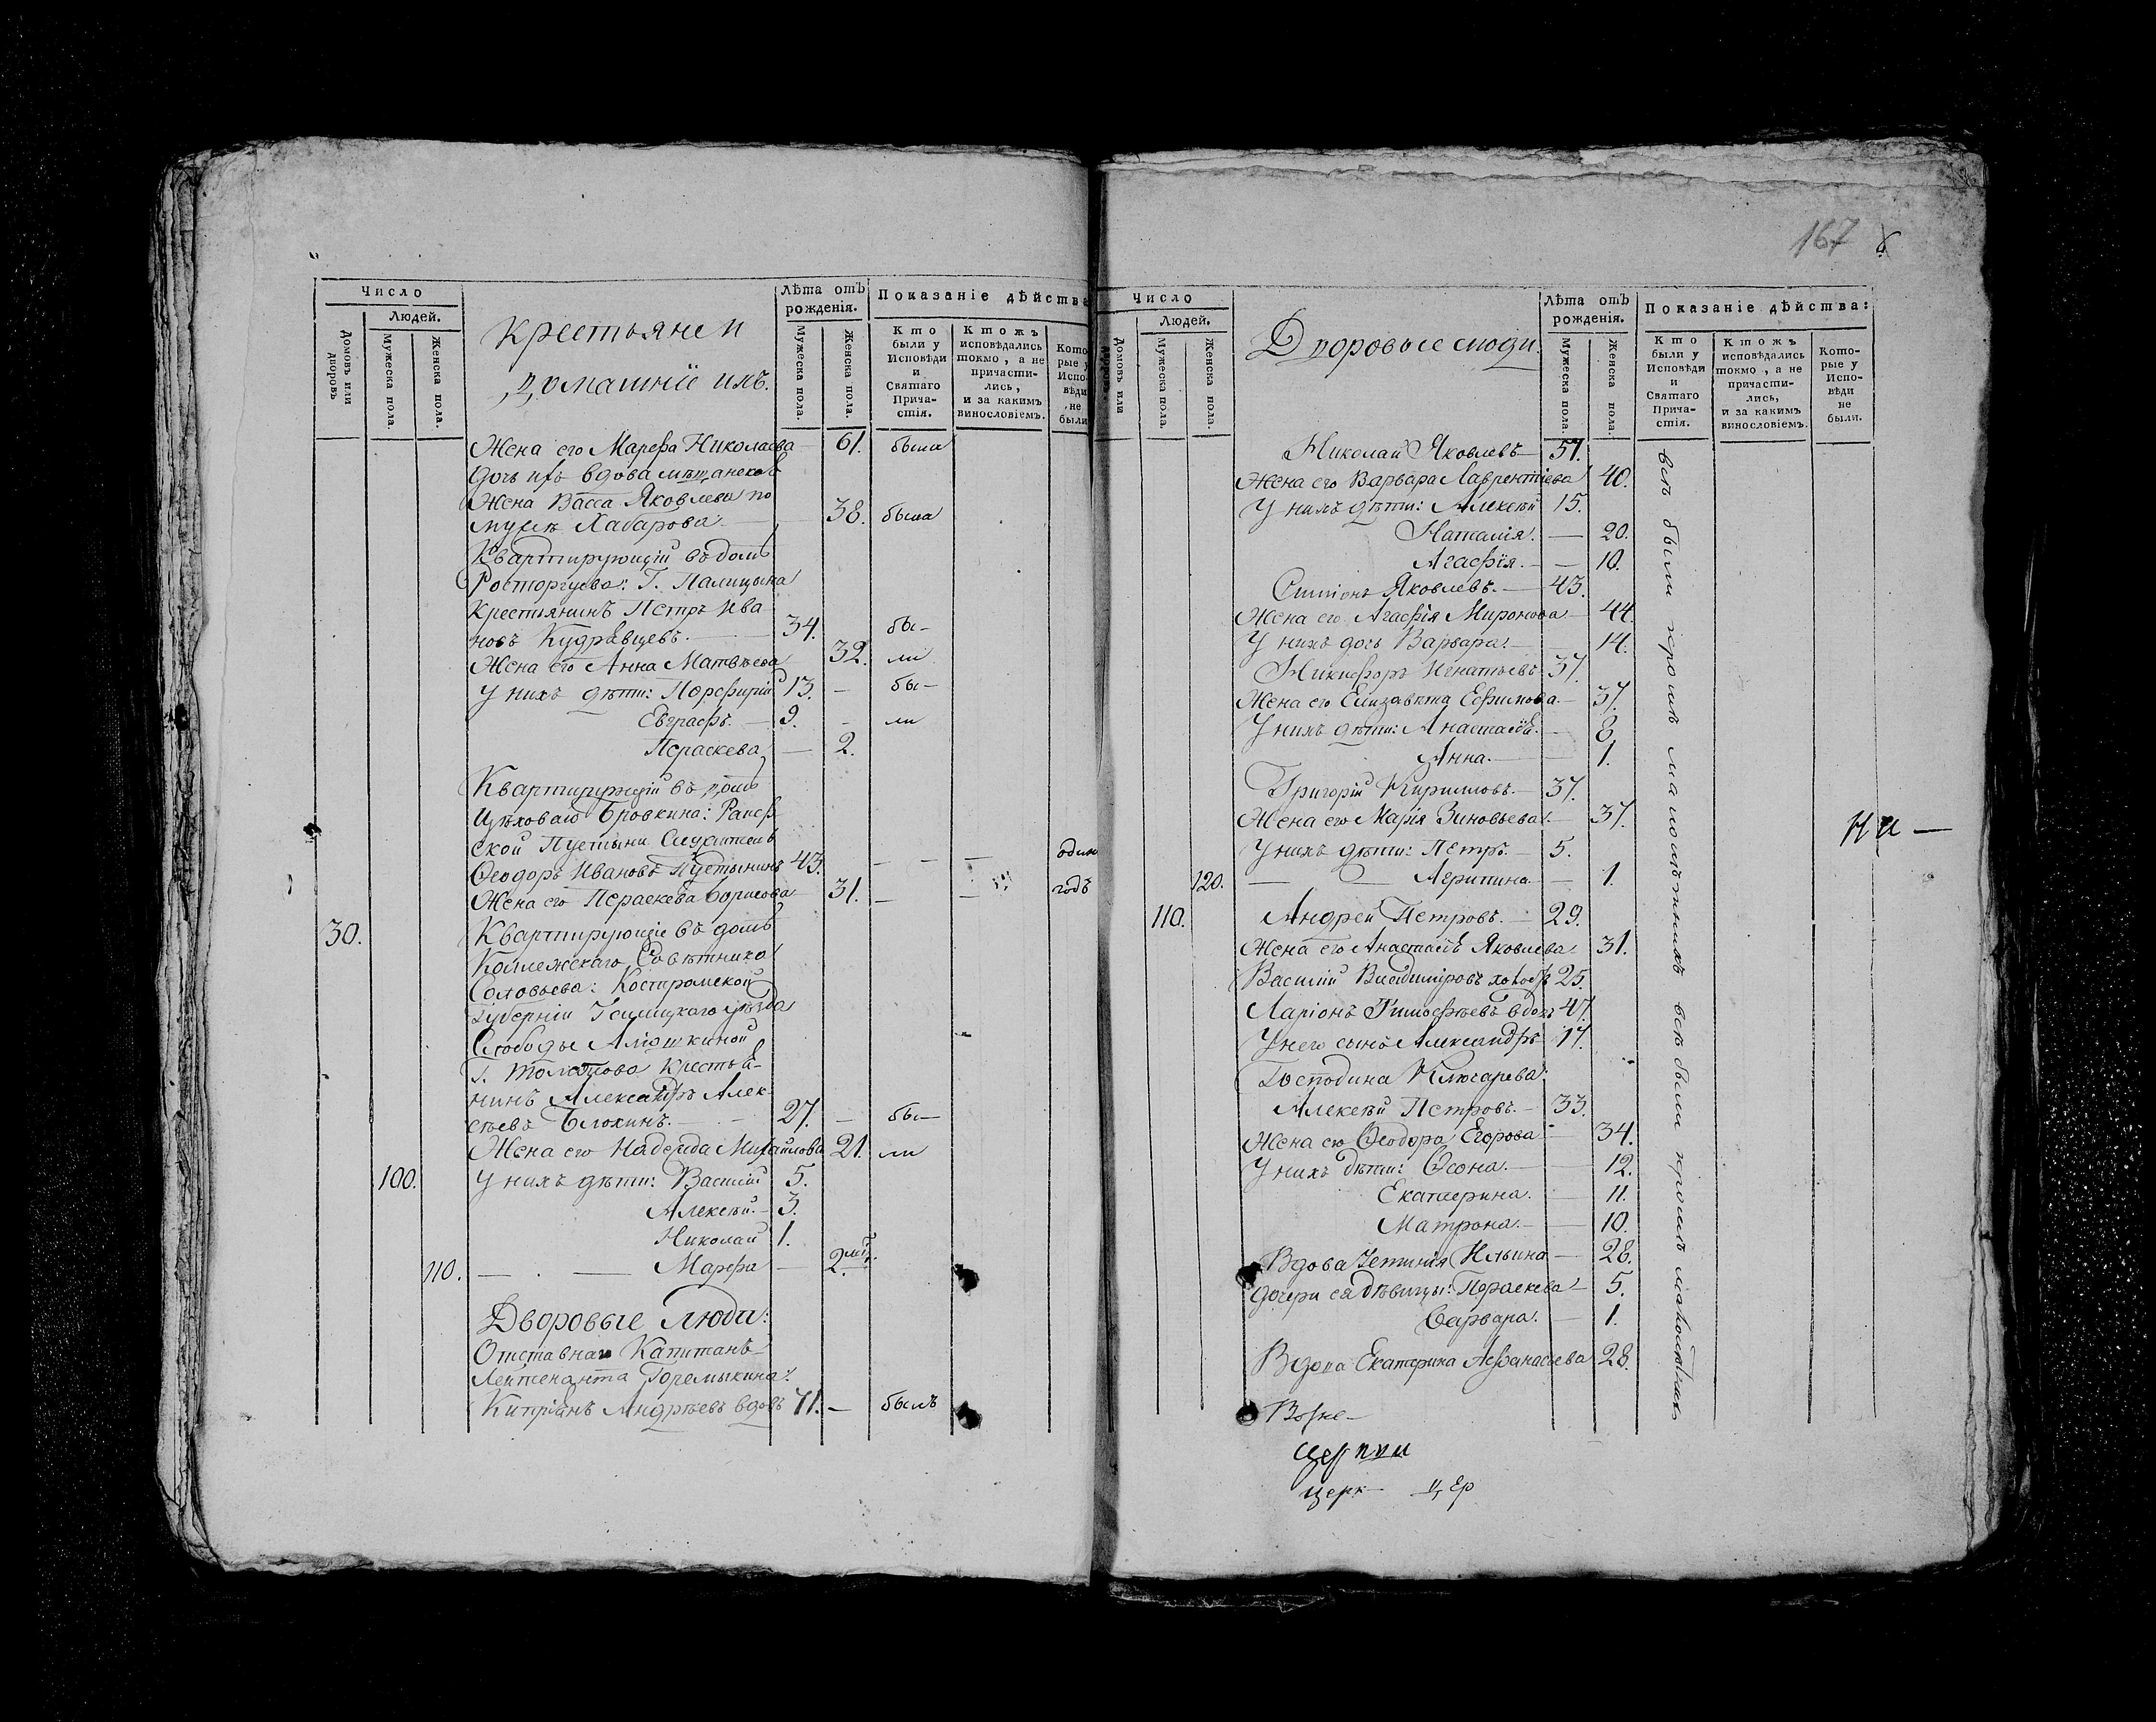 167
Число
Людей.
Домовъ или дворовъ
Мужеска пола.
Женска пола.
Крестьяне и
домашніе ихъ.
Лѣта отъ рожденія.
Мужеска пола.
Женска пола.
Показаніе дѣйства
Кто были у Исповѣди и Святаго Причастія.
Ктожъ исповѣдались токмо, а не причастились, и за какимъ винословіемъ.
Которые у Исповѣди не были
Жена его Марѳа Николаева 61. была
Дочь ихъ вдова мѣщанская
Жена Васса Яковлева по
мужѣ Хабарова. 38. была
Квартирующій въ домѣ
Росторгуева: Г. Палицына
Крестьянинъ Петръ Ива
новъ Кудрявцевъ. 34. бы-
Жена его Анна Матвѣева 32. ли
У нихъ дѣти: Порфирій 13. бы-
Евграфъ. 9. ли
Параскева 2.
Квартирующій въ домѣ
Цѣховаго Бровкина: Раиѳ
ской Пустыни Служитель
Ѳеодоръ Ивановъ Пустынинъ 43. одинъ
Жена его Параскева Борисова 31. годъ
30. Квартирующіе въ домѣ
Коллежскаго Совѣтника
Соловьева: Костромской
Губерніи Галицкаго уѣзда
Слободы Алюшкиной
Г. Толстова крестья-
нинъ Александръ Алек
сѣевъ Блохинъ. 27. бы-
Жена его Надежда Михайлова 21. ли
100. У нихъ дѣти: Василій 5.
Алексѣй. 3.
Николай 1.
110. Марѳа 2. мѣ.
Дворовые Люди:
Отставнаго Капитанъ
Лейтенанта Горемыкина:
Кипріянъ Андрѣевъ вдовъ 71. былъ
Число
Людей.
Домовъ или дворовъ
Мужеска пола.
Женска пола.
Дворовые люди.
Лѣта отъ рожденія.
Мужеска пола.
Женска пола.
Показаніе дѣйства:
Кто были у Исповѣди и Святаго Причастія.
Ктожъ исповѣдались токмо, а не причастились, и за какимъ винословіемъ.
Которые у Исповѣди не были.
Николай Яковлевъ 51.
Жена его Варвара Лаврентіева 40.
У нихъ дѣти: Алексѣй 15.
Наталія. 20.
Агафія. 10.
Симіонъ Яковлевъ. 43.
Жена его Агафія Миронова 44.
У нихъ дочь Варвара. 14.
Никифоръ Игнатьевъ 37.
Жена его Елизавета Ефимова. 37.
У нихъ дѣти: Анастасія. 8.
Анна. 1.
Григорій Кириловъ. 37.
Жена его Марія Зиновьева. 37.
У нихъ дѣти: Петръ. 5.
120. Агрипина. 1.
110. Андрей Петровъ. 29.
Жена его Анастасія Яковлева 31.
Василій Владиміровъ холостъ 25.
Ларіонъ Тимоѳѣевъ вдовъ 47.
У него сынъ Александръ 17.
Господина Ключарева:
Алексѣй Петровъ. 33.
Жена его Ѳеодора Егорова 34.
У нихъ дѣти: 12.
Екатерина. 11.
Матрона. 10.
Вдова Ильина 28.
Дочери ея дѣвицы: Параскева 5.
Варвара. 1.
Вдова Екатерина Аѳанасьева 28.
всѣ были кромѣ малолѣтныхъ всѣ были кромѣ малолѣтныхъ
ни —
Возне-
церкви
церк- ц ер